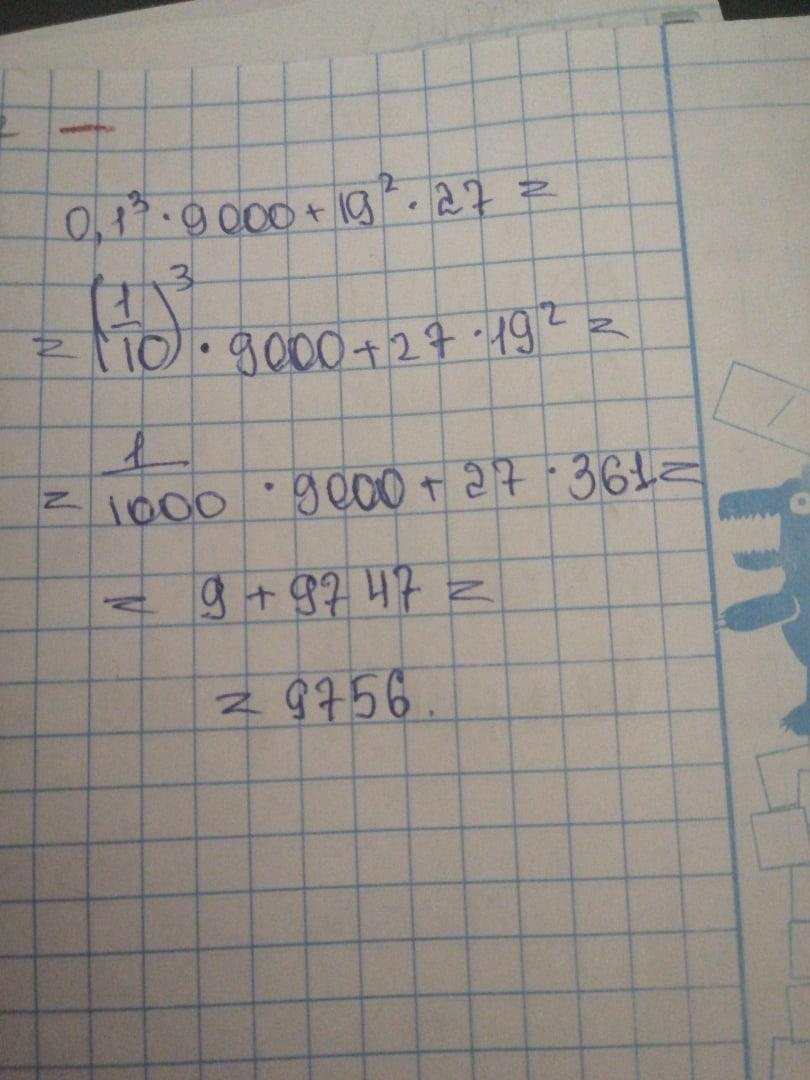 0,1³ · 9000 + 19² · 27 =
= (1/10)³ · 9000 + 27 · 19² =
= 1/1000 · 9000 + 27 · 361 =
= 9 + 9747 =
= 9756.